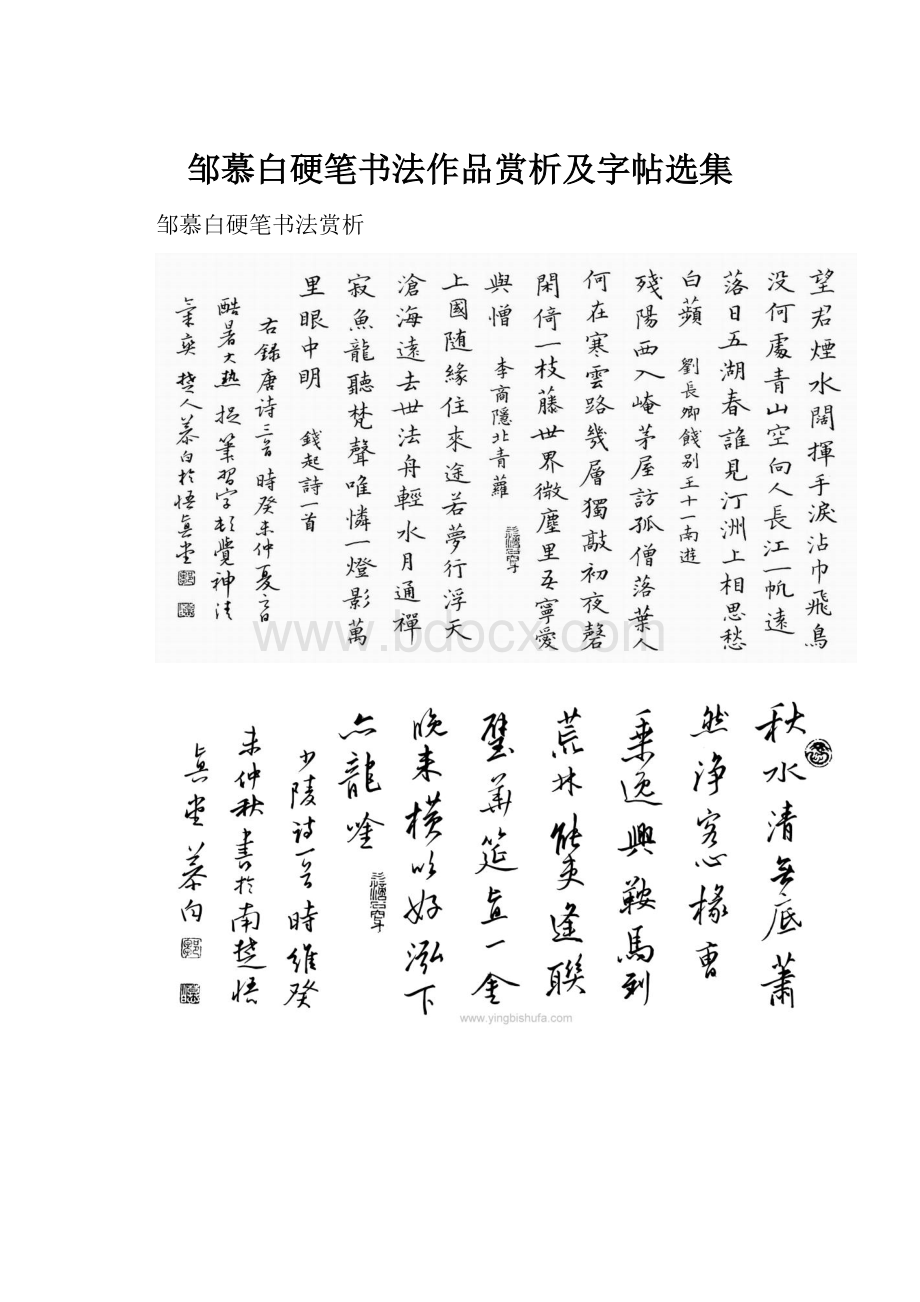 邹慕白硬笔书法作品赏析及字帖选集
邹慕白硬笔书法赏析
望君煙水闊揮手淚沾巾飛鳥
没何處青山空向人長江一帆遠
落日五湖春誰見汀洲上相思愁
白蘋 劉長卿餞别王十一南遊
殘陽西入崦茅屋訪孤僧落葉人
何在寒雲路幾層獨敲初夜磬
閑倚一枝藤世界微塵里吾寧愛
與憎 李商隱北青蘿
上國随緣住來途若夢行浮天
滄海遠去世法舟輕水月通禪
寂魚龍聽梵聲唯憐一燈影萬
里眼中明 錢起詩一首
右錄唐诗三首時癸未仲夏
酷暑大熱提筆習字頓覺神清
氣爽楚人慕白於悟真堂
www.bdocx.com
秋水清無底蕭
然浄客心椽曹
乗逸興鞍馬列
荒林能吏逢聯
璧華筵直一金
晚来横吹好泓下
亦龍唫
少陵诗一首時維癸
未仲秋書於南楚悟
真堂慕白
www.yingbishufa.com